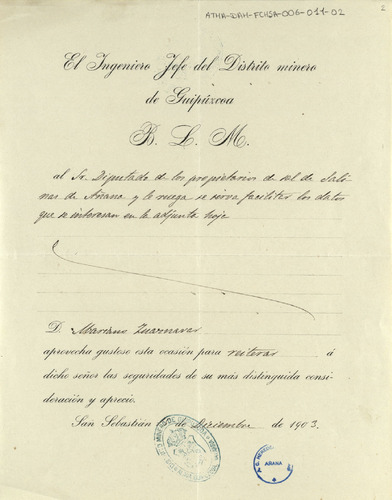 2
ATHA-DAH-FCHSA-006-011-02
El Ingeniero Jefe del Distrito minero
de Guipúzcoa
B. L. M.
al Sr. Diputado de los propietarios de sal de Sali
nas de Añana y le ruega se sirva facilitar los datos
que se interesan en la adjunta hoja
D. Mariano Zuaznavar
aprovecha gustoso esta ocasión para reiterar á
dicho señor las seguridades de su más distinguida consi-
deración y aprecio.
San Sebastián de Diciembre de 1903.
AÑANA